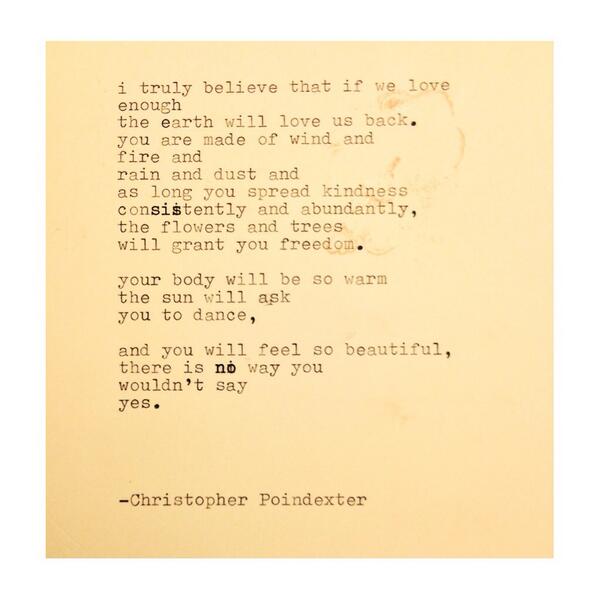 i truly believe that if we love
enough
the earth will love us back.
you are made of wind and
fire and
rain and dust and
as long you spread kindness
consistently and abundantly,
the flowers and trees
will grant you freedom.
your body will be so warm
the sun will ask
you to dance,
and you will feel so beautiful,
there is no way you
wouldn't say
yes.
-Christopher Poindexter